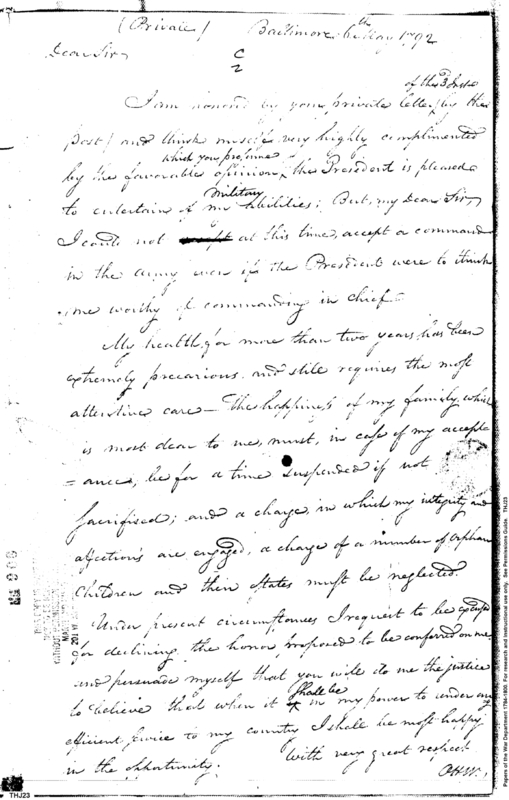 (Private) Baltimore 6th May 1792
Dear Sir,
C
2
of the 3d Inst.
I am honor'd by your private letter, by the
post, and think myself very highly complimented
which you presume
by the favorable opinion, the President is pleased
military
to entertain of my abilities; But, my Dear Sir,
I could not accept at this time, accept a command
in the army even if the President were to think
me worthy of commanding in chief.
My health, for more than two years, has been
extremely precarious and still requires the most
attentive care — The happiness of my family, which
is most dear to me, must, in case of my accept
=ance, be for a time suspended if not
sacrifised; and a charge, in which my integrity and
affections are engaged, a charge of a number of orphan
Children and their Estates must be neglected.
Under present circumstances I request to be excused
for declining the honor proposed to be conferred on me
and persuade myself that you will do me the justice
shall be
to believe that when it is in my power to render any
efficient service to my country I shall be most happy
in the opportunity. With very great respect
OHW.
THJ23
Papers of the War Department 1784-1800. For research and instructional use only. See Permissions Guide. THJ23